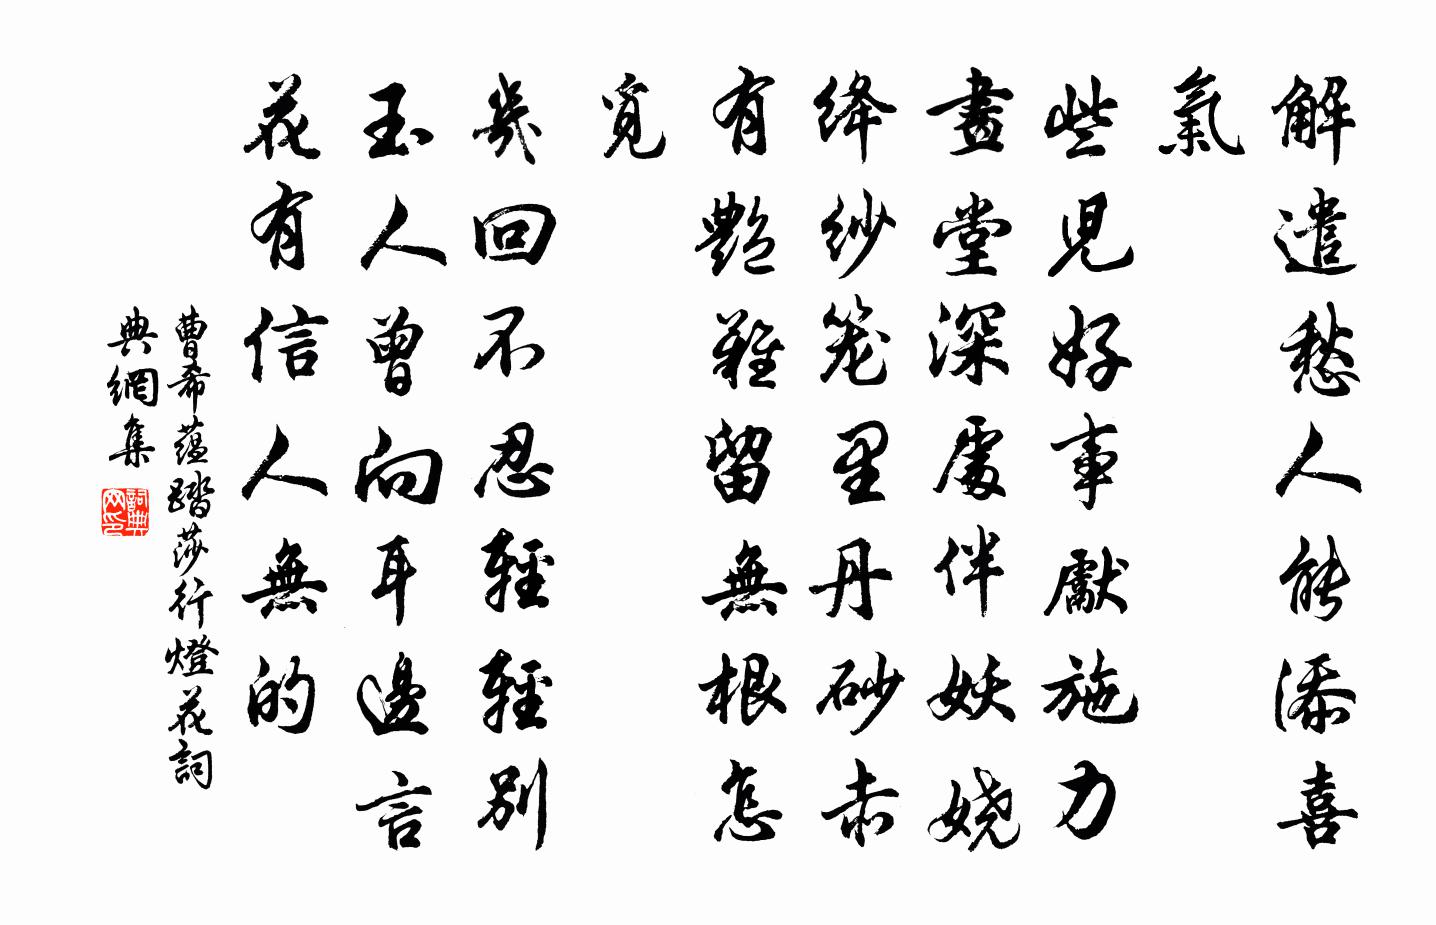 解遣愁人能添喜
氣
些兒好事獻施力
畫堂深處伴妖娆
絳紗笼里丹砂赤
有艷難留無根怎
覓
幾回不忍輕輕別
玉人曾向耳邊言
花有信人無的
曹希蘊踏莎行燈花詞
典網集
詞典
网印